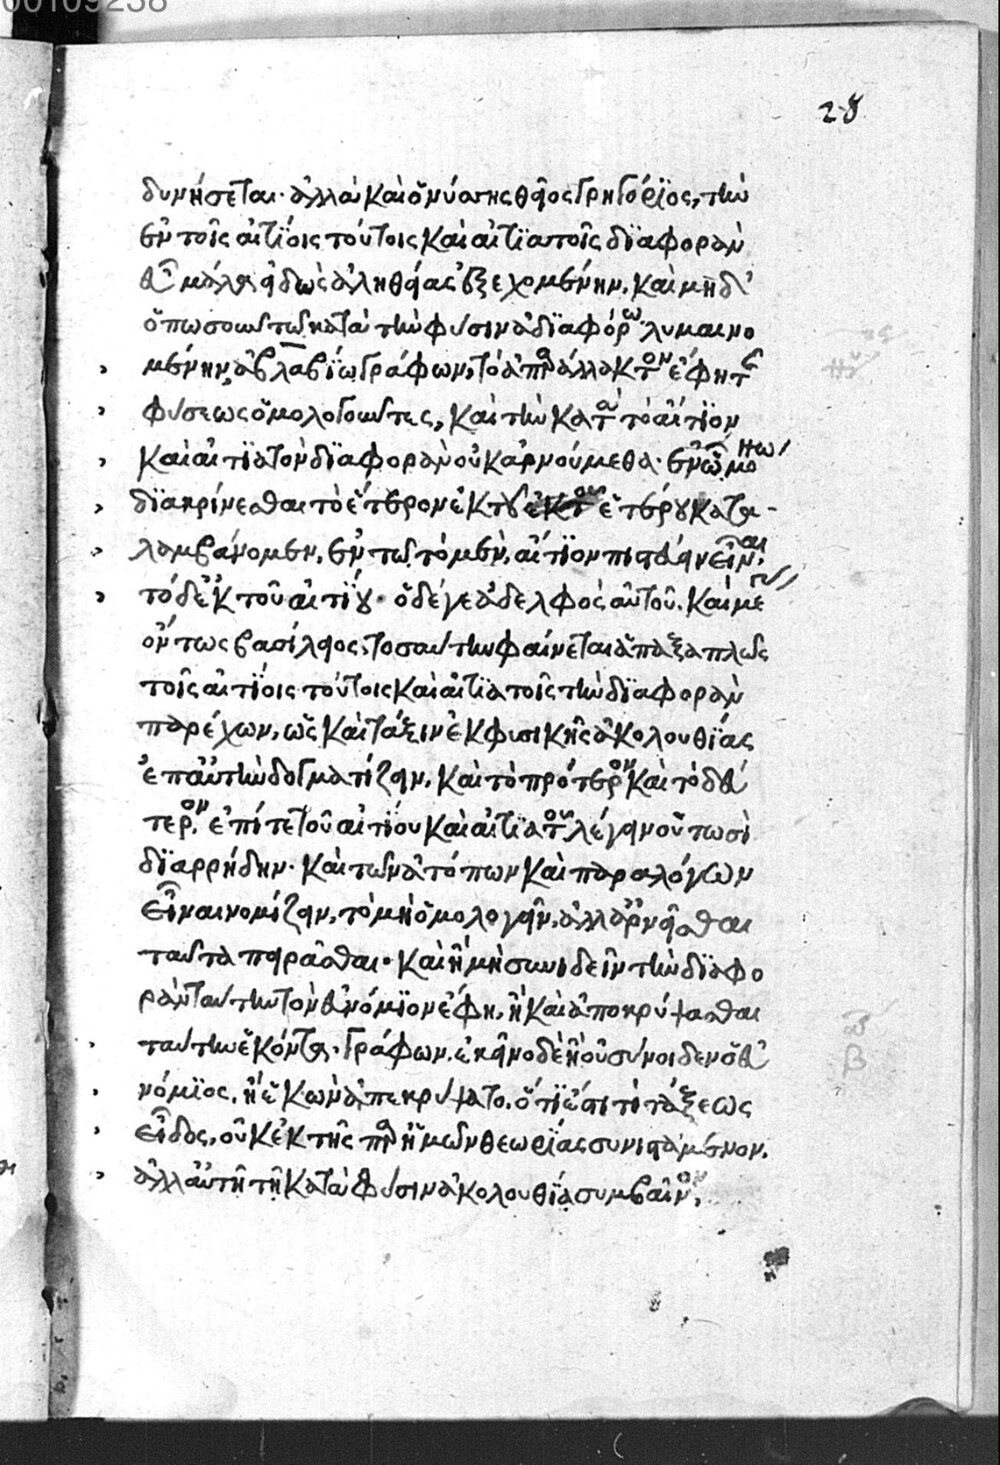 00109238
28
δυνήσεται· ἀλλὰ καὶ ὁ νύσσης θεῖος Γρηγόριος, τὴν
ἐν τοῖς αἰτίοις τούτοις καὶ αἰτιατοῖς διαφορὰν
εὖ μάλα εἰδὼς ἀληθείας ἐξεχομένην, καὶ μηδ'
ὁπωσοῦν τῶ κατὰ τὴν φύσιν ἀδιαφόρω λυμαινο
μένην ἀβλαβίω γράφων, τὸ ἀπαράλλακτον ἔφη τῆς
φύσεως ὁμολογοῦντες, καὶ τὴν κατὰ τὸ αἴτιον
καὶ αἰτιατὸν διαφορὰν οὐκ ἀρνούμεθα· ἐν ᾧ μόνω
διακρίνεσθαι τὸ ἕτερον ἐκ τοῦ ἑτέρου κατα-
λαμβάνομεν, ἐν τῶ τὸ μὲν, αἴτιον πιστεύειν εἶναι,
τὸ δὲ ἐκ τοῦ αἰτίου· ὁ δέ γε ἀδελφὸς αὐτοῦ, καὶ μέγας
ὄντως βασίλειος, τοσαύτην φαίνεται ἅπαξ ἁπλῶς
τοῖς αἰτίοις τούτοις καὶ αἰτιατοῖς τὴν διαφορὰν
παρέχων, ὡς καὶ τάξιν ἐκ φυσικῆς ἀκολουθίας
ἐπ' αὐτὴν δογματίζειν, καὶ τὸ πρότερον καὶ τὸ δεύ
τερον, ἐπί τε τοῦ αἰτίου καὶ αἰτιατοῦ λέγειν οὑτωσὶ
διαρρήδην· καὶ τῶν ἀτόπων καὶ παραλόγων
εἶναι νομίζειν, τὸ μὴ ὁμολογεῖν, ἀλλ' ἀρνεῖσθαι
ταῦτα πειρᾶσθαι· καὶ ἢ μὴ συνιδεῖν τὴν διαφο
ρὰν ταύτην τὸν εὐνόμιον ἔφη, ἢ καὶ ἀποκρύψασθαι
ταύτην ἑκόντα, γράφων, ἐκεῖνο δὲ ἢ οὐ σύνοιδεν ὁ εὐ
νόμιος, ἢ ἑκὼν ἀπεκρύψατο, ὅτι ἐστί τι τάξεως
εἶδος, οὐκ ἐκ τῆς παρ' ἡμῶν θεωρίας συνιστάμενον,
ἀλλ' αὐτῆ τῆ κατὰ φύσιν ἀκολουθία συμβαῖνον,